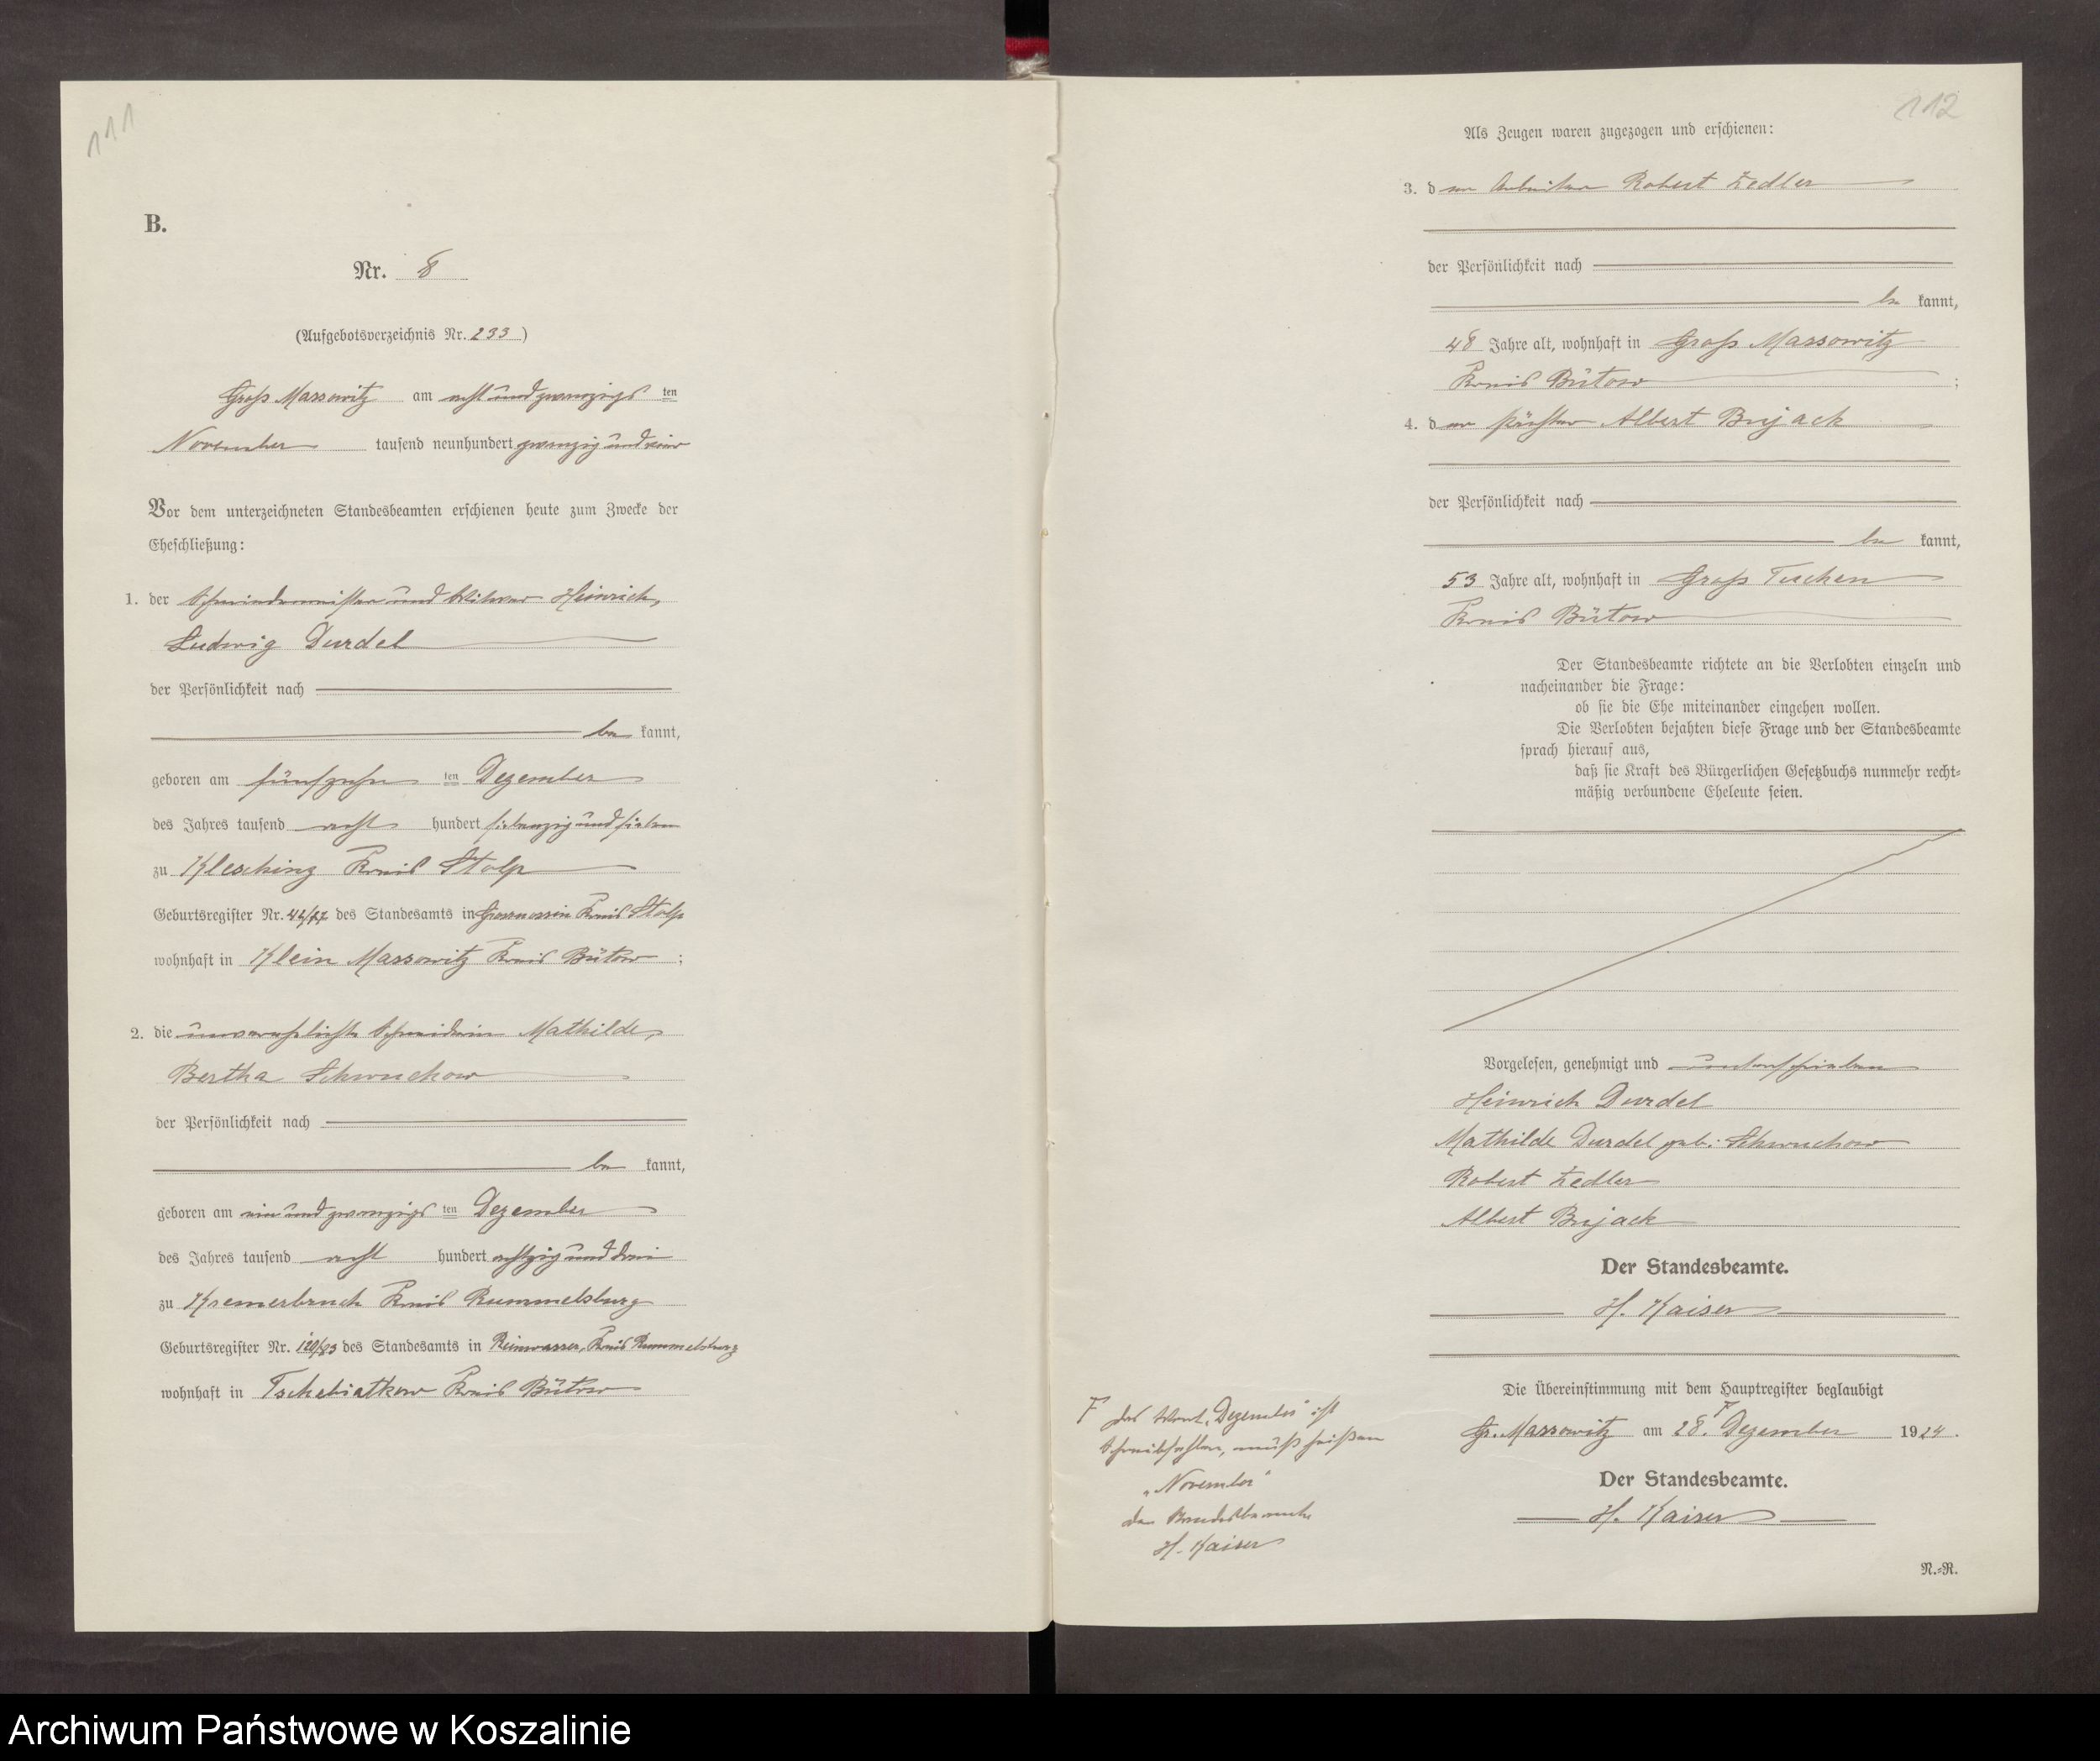 111
B.
Nr. 8
(Aufgebotsverzeichnis Nr. 233)
Groß Massowitz am acht und zwanzigs ten
November tausend neunhundert zwanzig und vier
Vor dem unterzeichneten Standesbeamten erschienen heute zum Zwecke der
Eheschließung:
1. der Schneidermeister und Witwer Heinrich,
Ludwig Durdel
der Persönlichkeit nach
be kannt,
geboren am fünfzehn ten Dezember
des Jahres tausend acht hundert siebenzig und sieben
zu Kleschinz Kreis Stolp
Geburtsregister Nr. /77 des Standesamts in Kreis Stolp
wohnhaft in Klein Massowitz Kreis Bütow ;
2. die unverehelichte Schneiderin Mathilde,
Bertha Schwuchow
der Persönlichkeit nach
be kannt,
geboren am ein und zwanzigs ten Dezember
des Jahres tausend acht hundert achtzig und drei
zu Kremerbruch Kreis Rummelsburg
Geburtsregister Nr. 120/83 des Standesamts in Reinwasser, Kreis Rummelsburg
wohnhaft in Tschebiatkow Kreis Bütow
112
Als Zeugen waren zugezogen und erschienen:
3. der Arbeiter Robert Zedler
der Persönlichkeit nach
be kannt,
48 Jahre alt, wohnhaft in Groß Massowitz
Kreis Bütow ;
4. der Pächter Albert Bujack
der Persönlichkeit nach
be kannt,
53 Jahre alt, wohnhaft in Groß Tuchen
Kreis Bütow
Der Standesbeamte richtete an die Verlobten einzeln und
nacheinander die Frage:
ob sie die Ehe miteinander eingehen wollen.
Die Verlobten bejahten diese Frage und der Standesbeamte
sprach hierauf aus,
daß sie Kraft des Bürgerlichen Gesetzbuchs nunmehr recht-
mäßig verbundene Eheleute seien.
Vorgelesen, genehmigt und unterschrieben
Heinrich Durdel
Mathilde Durdel geb. Schwuchow
Robert Zedler
Albert Bujack
Der Standesbeamte.
H. Kaiser
Die Übereinstimmung mit dem Hauptregister beglaubigt
Gr. Massowitz am 28. F Dezember 1924.
Der Standesbeamte.
H. Kaiser
F das Wort „Dezember" ist
Schreibfehler, muß heißen
„November"
der Standesbeamte
H. Kaiser
N.-R.
Archiwum Państwowe w Koszalinie